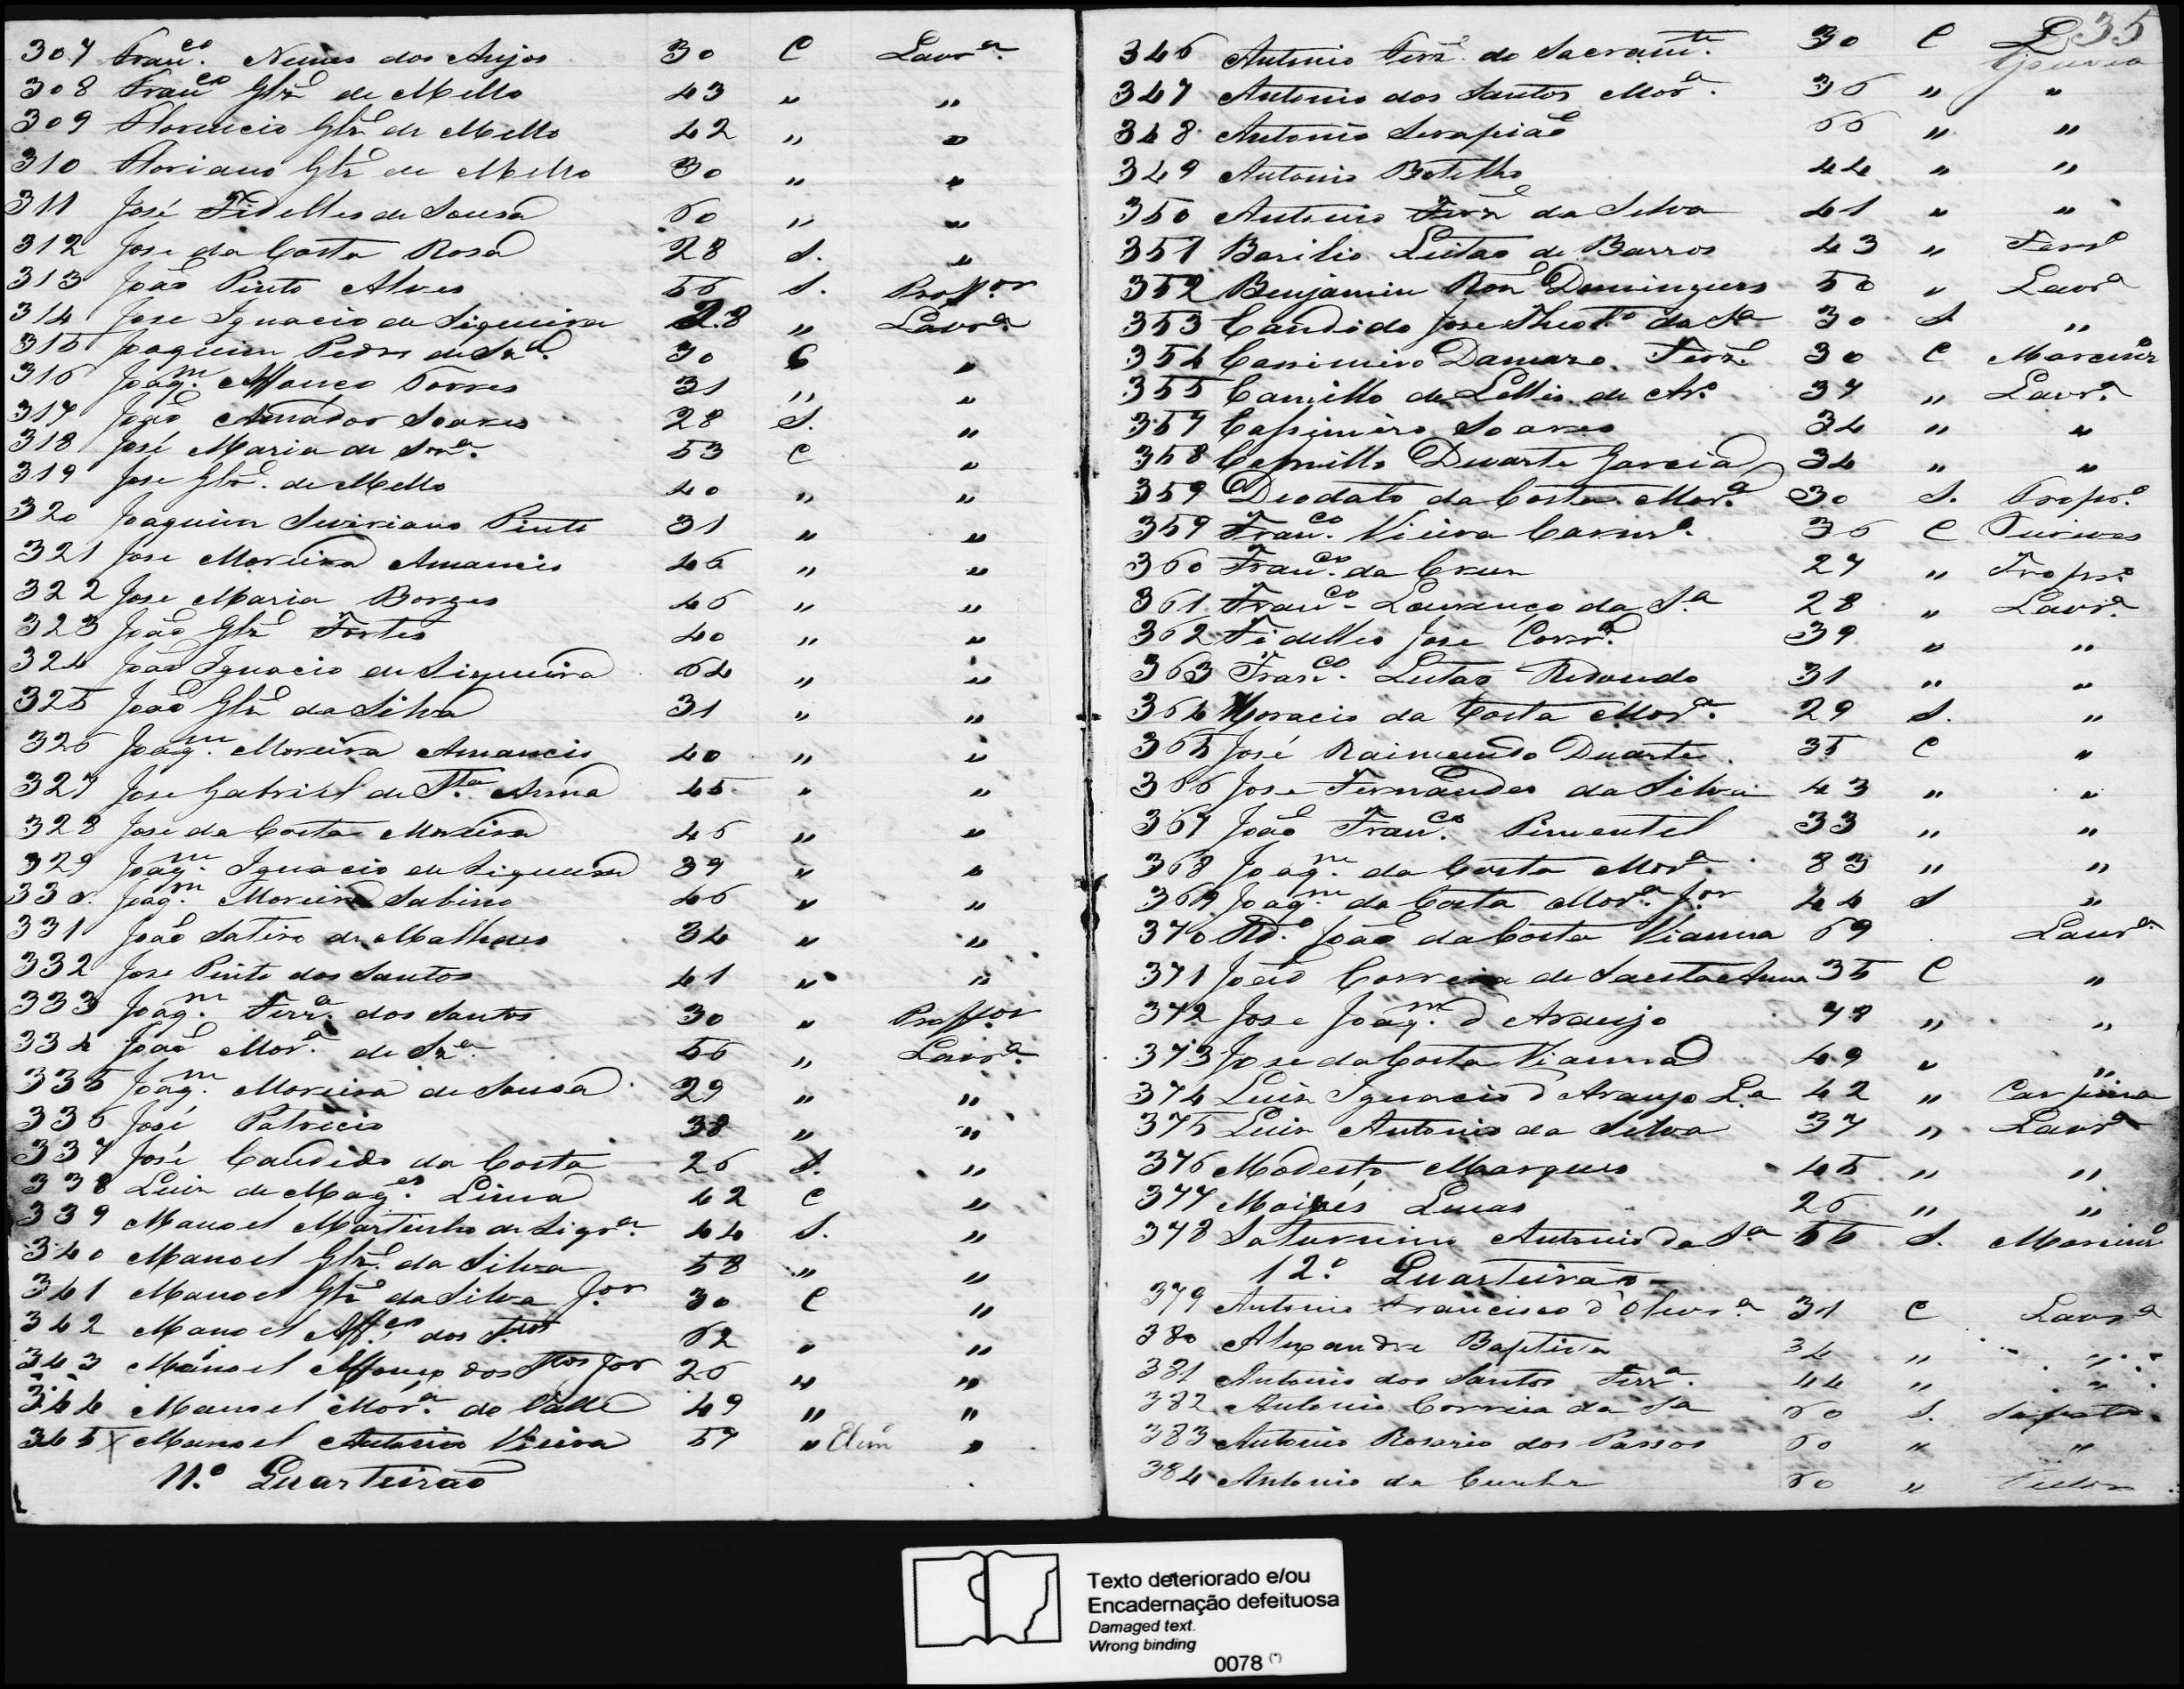 307 Franco. Nunes dos Anjos 30 C Lavra.
308 Franco Glz de Mello 43 " "
309 Florencio Glz de Mello 42 " "
310 Floriano Glz de Mello 30 " "
311 José Fidelles de Sousa 60 " "
312 Jose da Costa Rosa 28 S. "
313 João Pinto Alves 56 S. Proffor
314 Jose Ignacio de Siqueira 28 " Lavra
315 Joaquim Pedro de 30 C "
316 Joaqm. Affonço Torres 31 " "
317 João Amador Soares 28 S. "
318 José Maria de 53 C "
319 Jose Glz. de Mello 40 " "
320 Joaquim Seviriano Pinto 31 " "
321 Jose Moreira Amancio 46 " "
322 Jose Maria Borges 46 " "
323 João Glz Fortes 40 " "
324 João Ignacio de Siqueira 64 " "
325 João Glz da Silva 31 " "
326 Joaqm. Moreira Amancio 40 " "
327 Jose Gabriel de Sta. Anna 45 " "
328 Jose da Costa Moreira 46 " "
329 Joaqm. Ignacio de Siqueira 39 " "
330. Joaqm. Moreira Sabino 46 " "
331 João Satiro de Matheus 34 " "
332 Jose Pinto dos Santos 41 " "
333 Joaqm. Ferra. dos Santos 30 " Proffor
334 João Mora. de Sza. 56 " Lavra.
335 Joaqm. Moreira de Sousa 29 " "
336 José Patricio 38 " "
337 José Candido da Costa 26 S. "
338 Luiz de Mages. Lima 42 C "
339 Manoel Martinho de Siqra. 44 S. "
340 Manoel Glz. da Silva 58 " "
341 Manoel Glz da Silva Jor 30 C "
342 Manoel Affco. dos Stos 62 " "
343 Manoel Affonço dos Stos Jor 26 " "
344 Manoel Mora. do Valle 49 " "
345 X Manoel Antonio Vieira 57 " Elim "
11.o Quarteirão
35
346 Antonio Ferz. do Sacramto. 30 C
347 Antonio dos Santos Mora. 36 " "
348 Antonio Serapião 66 " "
349 Antonio Botelho 44 " "
350 Antonio Ferz da Silva 41 " "
351 Basilio Leitao de Barros 43 " Ferro
352 Benjamin Roz Domingues 50 " Lavra
353 Candido Jose Theoto. da Sa 30 S. "
354 Cassimiro Damazo Ferz. 30 C Marcinr
355 Camillo de Lellis de Ar.o 37 " Lavra.
357 Cassimiro Soares 34 " "
358 Camillo Duarte Garcia 34 " "
359 Deodato da Costa Mora. 30 S. Tropo.
359 Franco. Vieira 36 C Ourives
360 Franco. da Cruz 27 " Tropo.
361 Franco. Lourenço da Sa 28 " Lavra.
362 Fidellis Jose Corra. 39 " "
363 Franco. Leitao Redondo 31 " "
364 Horacio da Costa Mora. 29 S. "
365 José Raimundo Duarte 35 C "
366 Jose Fernandes da Silva 43 " "
367 João Franco. Pimentel 33 " "
368 Joaqm. da Costa Mora. 83 " "
369 Joaqm. da Costa Mora. Jor 44 S "
370 Rdo. João da Costa Vianna 69 Lavra.
371 João Correia de Santa Anna 35 C "
372 Jose Joaqm. d'Araujo 48 " "
373 Jose da Costa Vianna 49 " "
374 Luiz Ignacio d'Araujo La 42 " Carpina
375 Luiz Antonio da Silva 37 " Lavra
376 Modesto Marques 45 " "
377 Moisés Lucas 26 " "
378 Saturnino Antonio da Sa 55 S. Marcinr
12.o Quarteirão
379 Antonio Francisco d'Olivra 31 C Lavra
380 Alexandre Baptista 34 " "
381 Antonio dos Santos Ferra. 44 " "
382 Antonio Correia da Sa 60 S. Sapato.
383 Antonio Rosario dos Passos 60 " "
384 Antonio da Cunha 60 "
Texto deteriorado e/ou
Encadernação defeituosa
Damaged text.
Wrong binding
0078 (*)